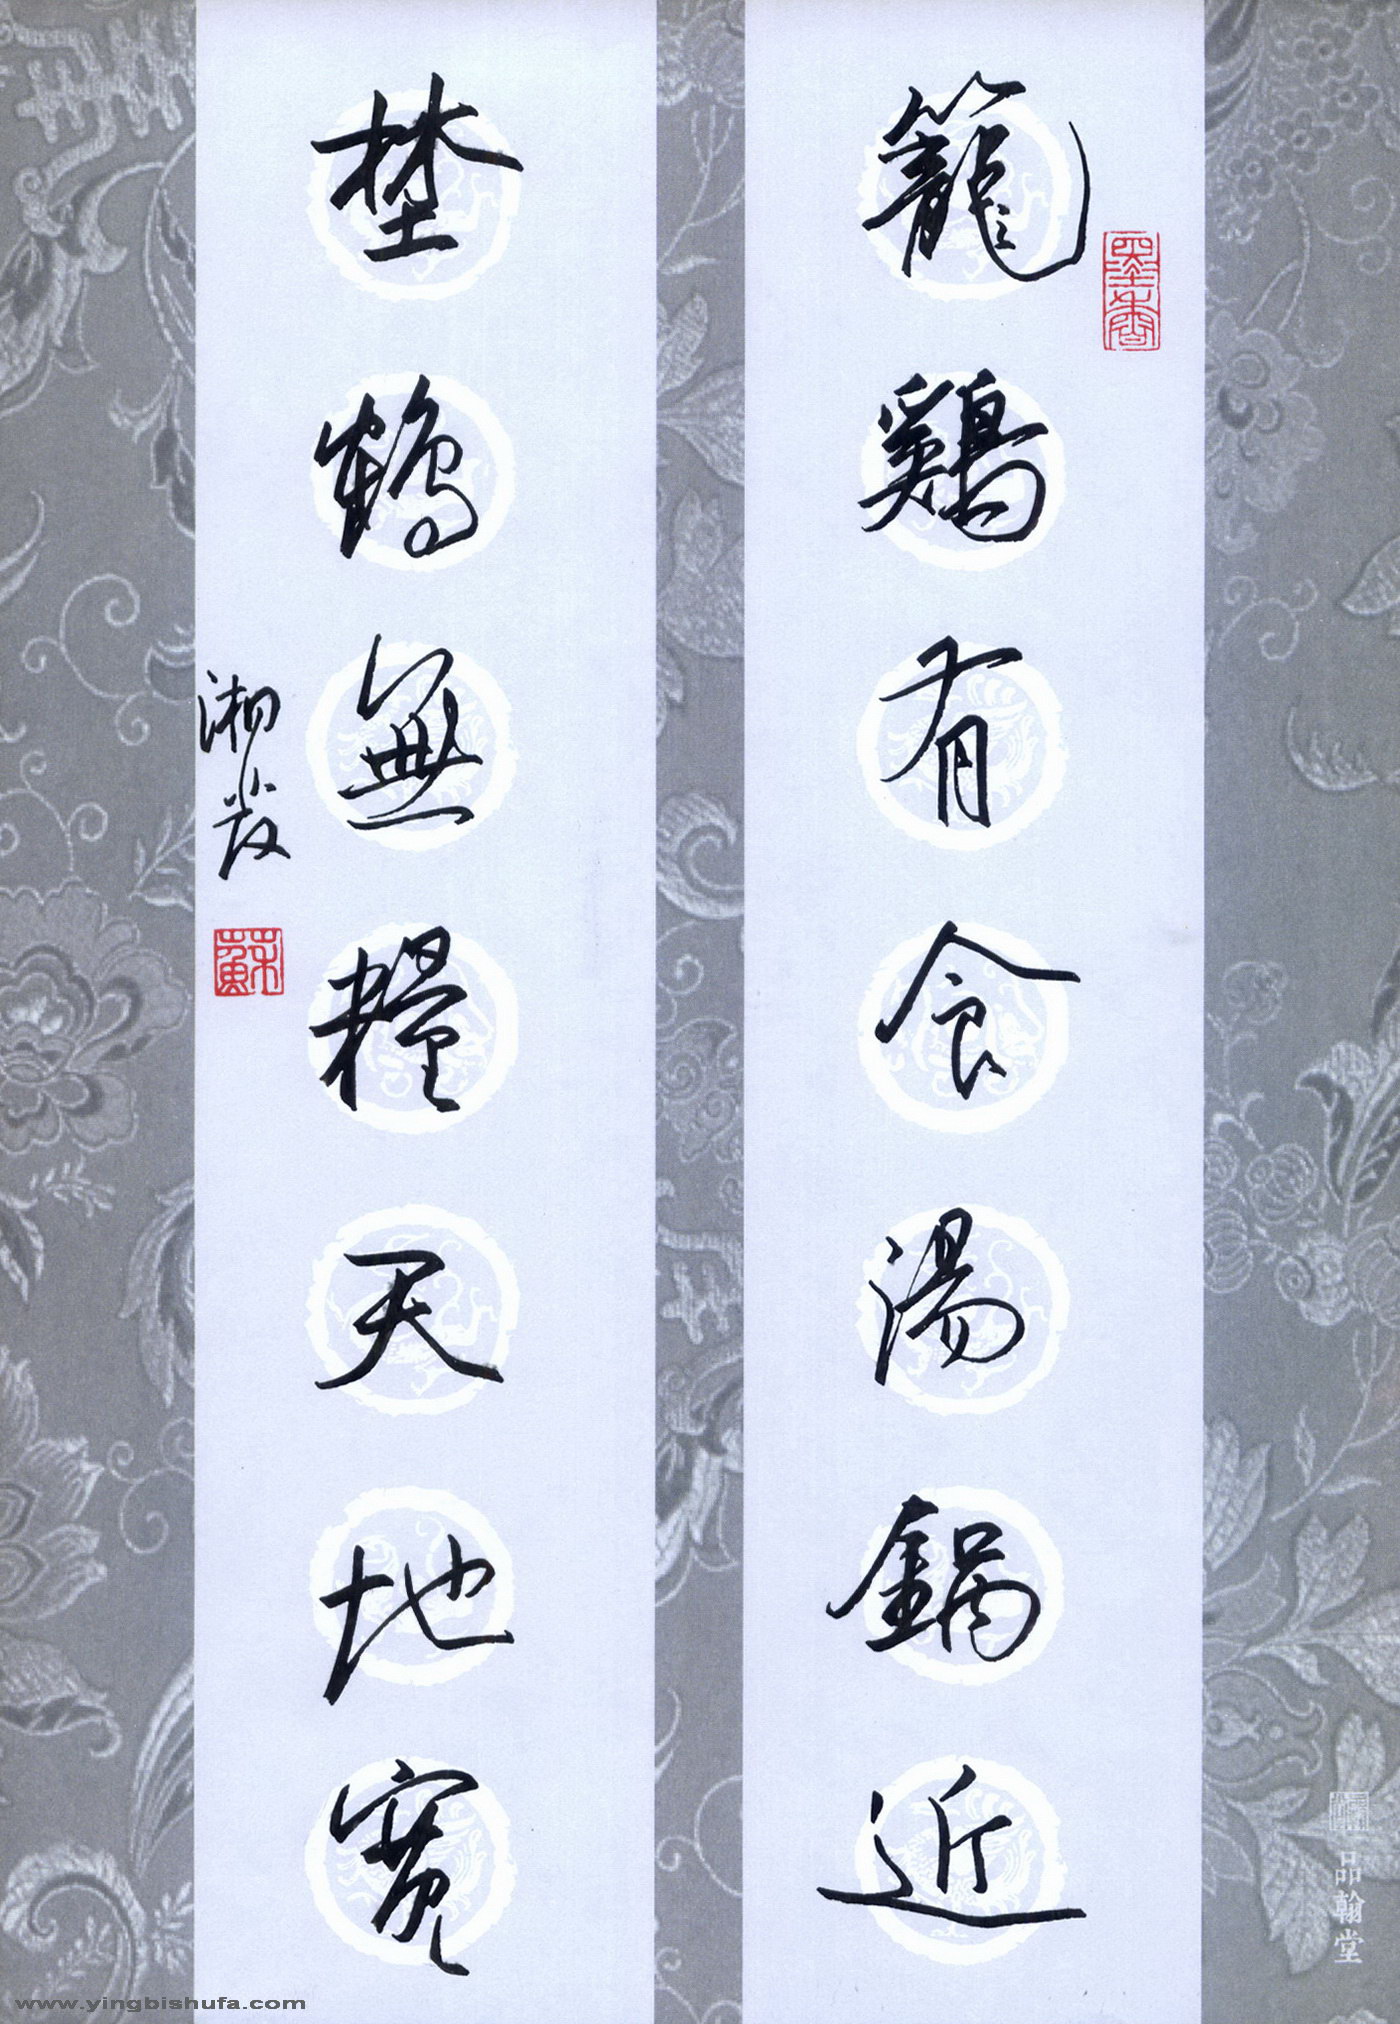 籠鷄有食湯鍋近
埜鶴無糧天地寬
墨香
蘇
一品翰堂
www.yingbishufa.com